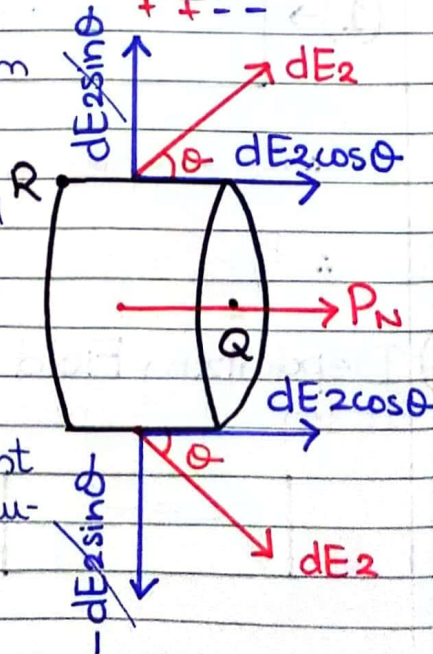 + + - -
dE2sinθ
dE2
θ
dE2cosθ
R
∴
PN
Q
dE2cosθ
θ
-dE2sinθ
dE2